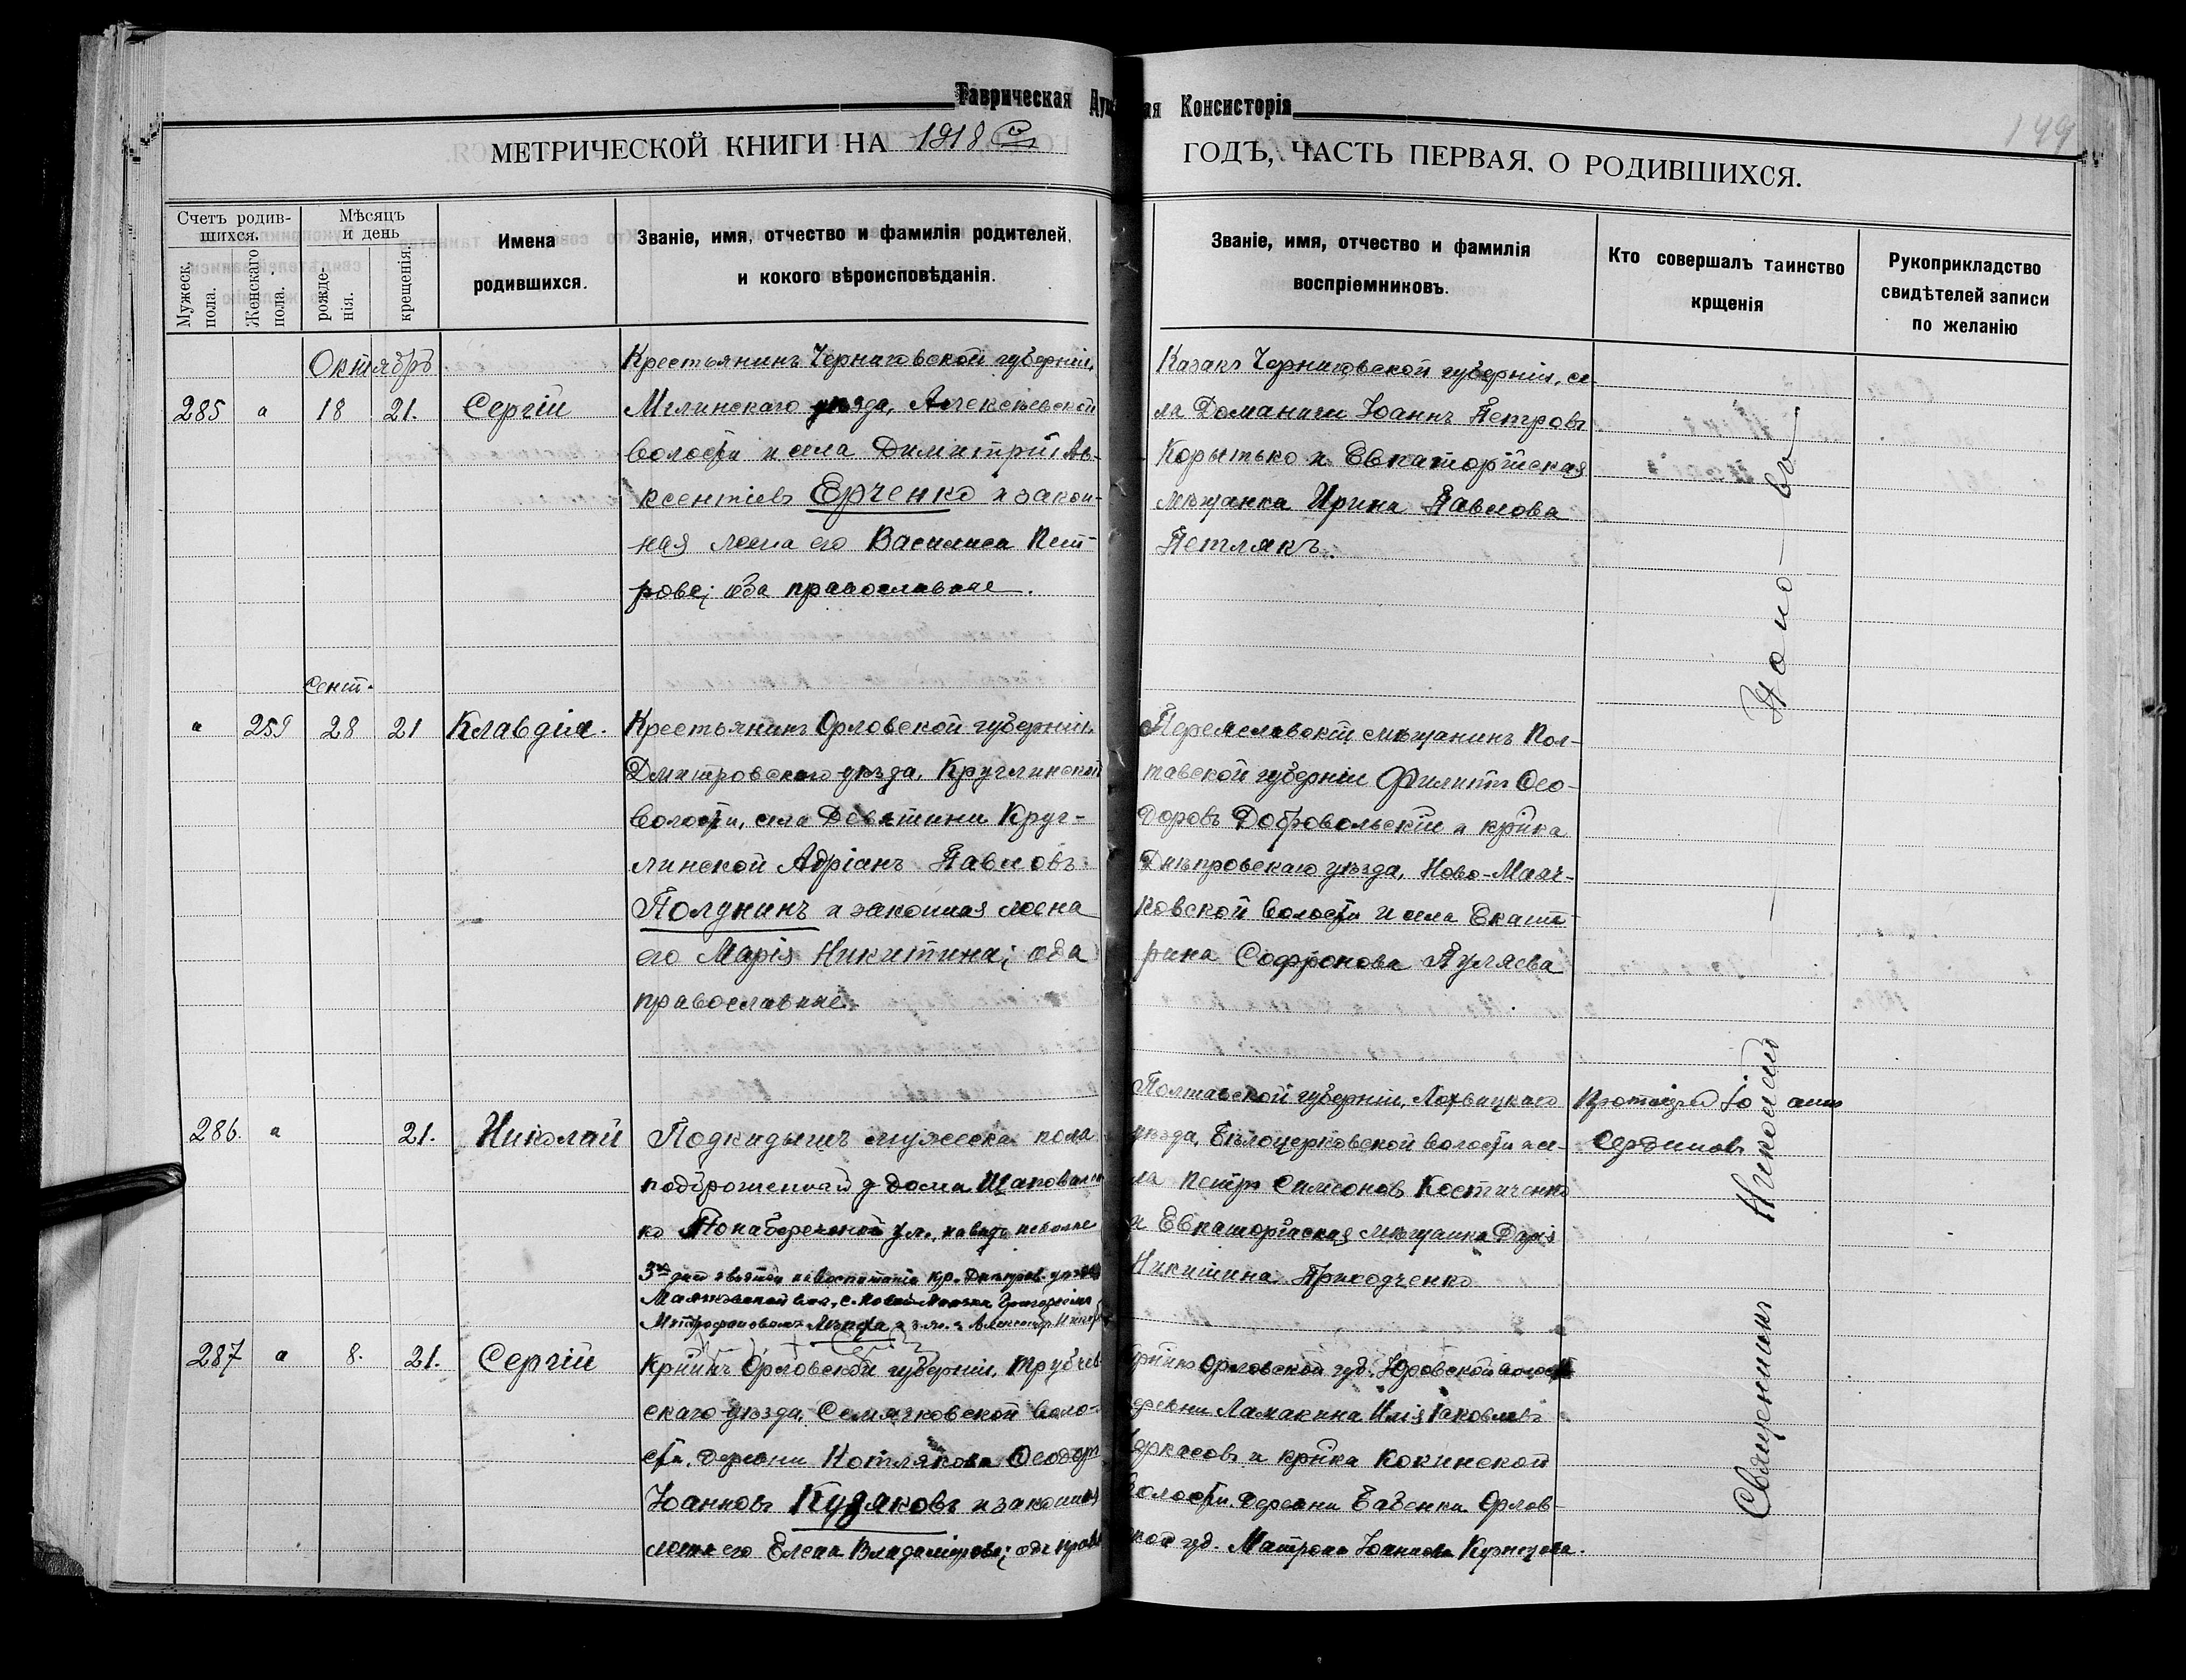 Таврическая Ду ая Консисторія
149
МЕТРИЧЕСКОЙ КНИГИ НА 1918 й ГОДЪ, ЧАСТЬ ПЕРВАЯ, О РОДИВШИХСЯ.
Счетъ родив-
шихся.
Мужеск. пола.
Женскаго пола.
Мѣсяцъ
и день
рожде-
нія.
крещенія.
Имена
родившихся.
Званіе, имя, отчество и фамилія родителей,
и кокого вѣроисповѣданія.
Званіе, имя, отчество и фамилія
воспріемниковъ.
Кто совершалъ таинство
крщенія
Рукоприкладство
свидѣтелей записи
по желанію
Октябрь
285 а 18 21. Сергій
Крестьянинъ Черниговской губерніи,
Мглинскаго уѣзда, Алексѣевской
волости и села Димитрій Ав-
ксентіевъ Ерченко и закон-
ная жена его Василиса Пет-
рова; оба православные.
Казакъ Черниговской губерніи, се-
ла Доманичи Іоаннъ Петровъ
Корытько и Евпаторійская
мѣщанка Ирина Павлова
Петлякъ.
Сент.
а 259 28 21 Клавдія.
Крестьянинъ Орловской губерніи,
Дмитровскаго уѣзда, Круглинской
волости, села Девятини Круг-
линской Адріанъ Павловъ
Полунинъ и законная жена
его Марія Никитина; оба
православные.
Переяславскій мѣщанинъ Пол-
тавской губерніи Филиппъ Ѳео-
доровъ Добровольскій и кр-ка
Днѣпровскаго уѣзда, Ново-Маяч-
ковской волости и села Екате-
рина Софронова Пуляева
286. а 21. Николай
Подкидышъ мужеска пола
подброшенный у дома Шаповален
ко по набережной ул., на видъ не болѣе
3хъ дней взятъ на воспитаніе кр. Днѣпров. уѣзда
Маячковской вол., с. Новой-Маячки Григоріемъ
Митрофановомъ
Полтавской губерніи, Лохвицкаго
уѣзда, Бѣлоцерковской волости и се-
ла Петръ Симеоновъ Костиченко
и Евпаторійская мѣщанка Дарія
Никитина Приходченко
Протоіерей Іоаннъ
Сербиновъ
287 а 8. 21. Сергій
Кр-нинъ Орловской губерніи, Трубчев-
скаго уѣзда, Семячковской воло-
сти, деревни Котлякова Ѳеодоръ
Іоанновъ Кудяковъ и законная
жена его Елена Владимірова; оба прав
Орловской губ. Юровской волости
деревни Ламакина Илія Іаковлевъ
Черкасовъ и кр-ка Кокинской
волости деревни Бабенки Орлов-
ской губ. Матрона Іоаннова Кузнецова.
Священникъ Николай